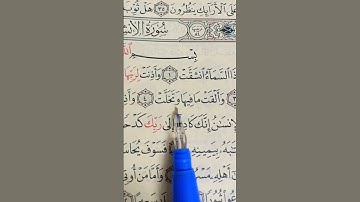 عَلَى ٱلْأَرَآئِكِ يَنظُرُونَ ٣٥ هَلْ ثُوِّبَ
سُورَةُ الانشـ
بِسْـــمِ اللَّه
ذَا ٱلسَّمَآءُ ٱنشَقَّتْ ١ وَأَذِنَتْ لِرَبِّهَا
٣ وَأَلْقَتْ مَا فِيهَا وَتَخَلَّتْ ٤ وَأَذِ
لْإِنسَٰنُ إِنَّكَ كَادِحٌ إِلَىٰ رَبِّكَ كَدْحًا
بَهُۥ بِيَمِينِهِۦ فَسَوْفَ يُحَاسَ
أَهْلِهِۦ مَسْرُ وَأَمَّا مَنْ أُوتِ